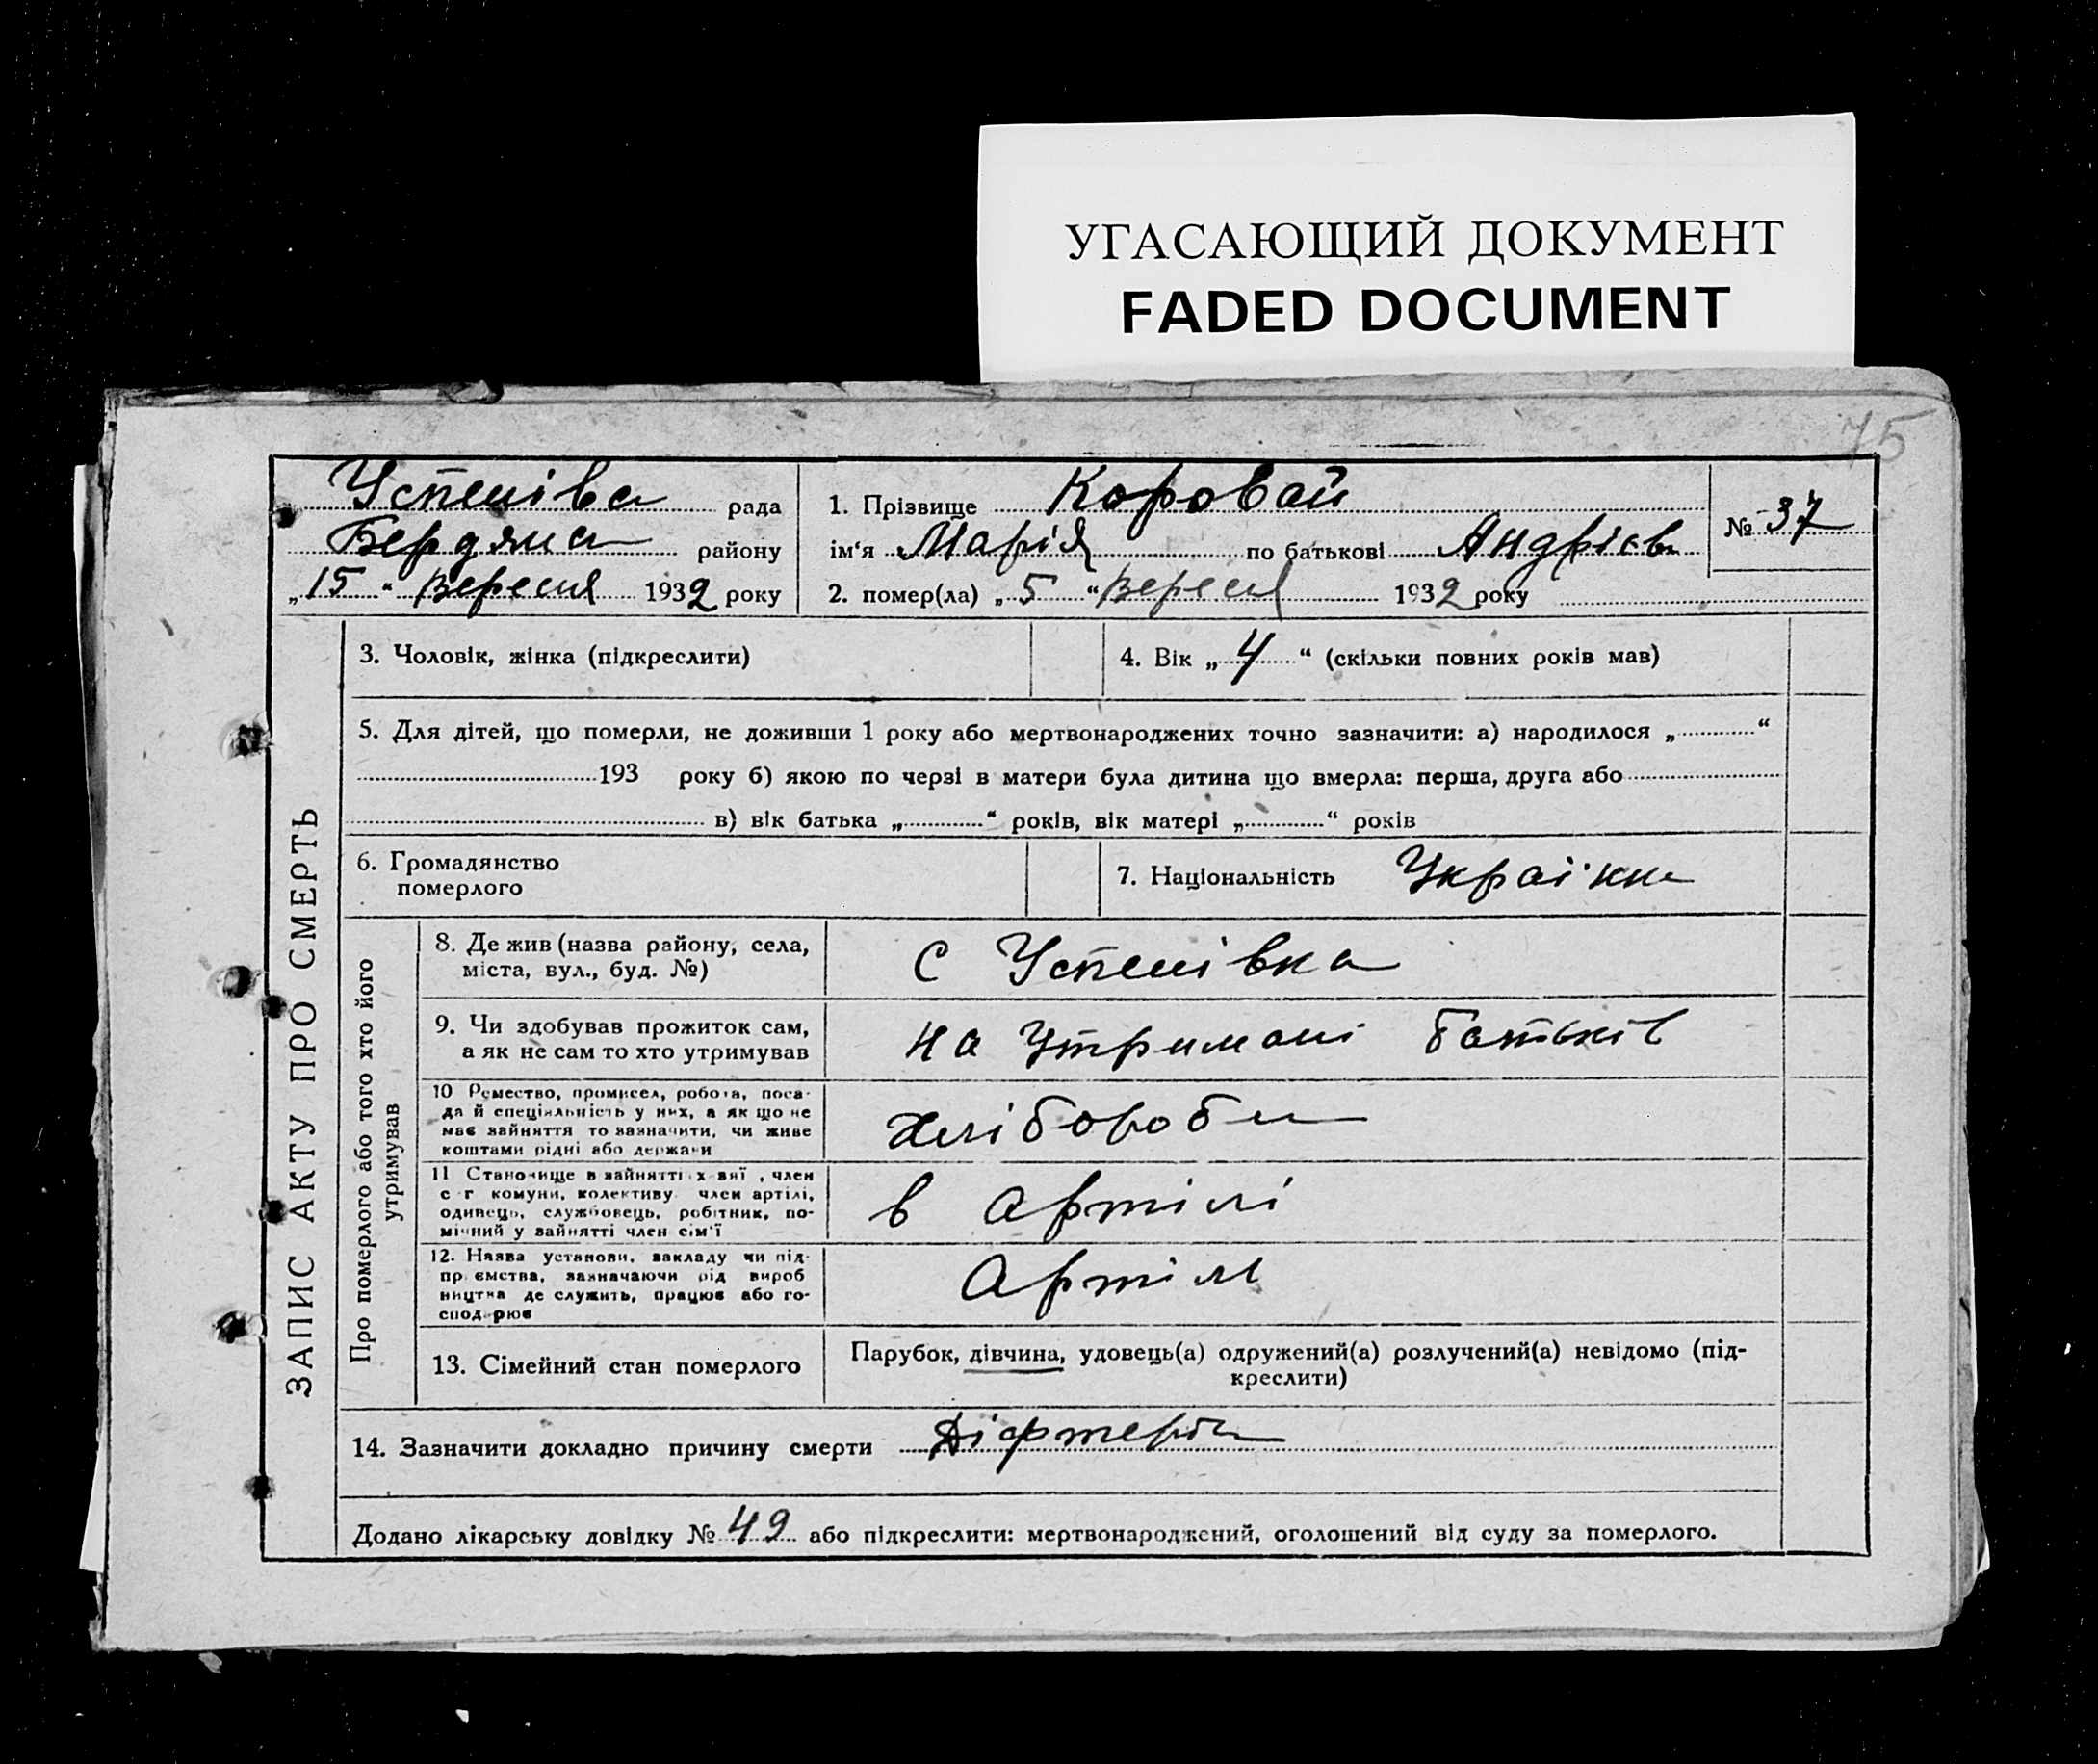 УГАСАЮЩИЙ ДОКУМЕНТ
FADED DOCUMENT
75
Успенівса рада
Бердянса району
„15“ Вересня 1932 року
1. Прізвище Коровай
ім‘я Марія по батькові Андрієв
2. помер(ла) „5“ Вересня 1932 року
№ 37
ЗАПИС АКТУ ПРО СМЕРТЬ
3. Чоловік, жінка (підкреслити)
4. Вік „4“ (скільки повних років мав)
5. Для дітей, що померли, не доживши 1 року або мертвонароджених точно зазначити: а) народилося „ “
193 року б) якою по черзі в матери була дитина що вмерла: перша, друга або
в) вік батька „ “ років, вік матері „ “ років
6. Громадянство
померлого
7. Національність Українка
Про померлого або того хто його
утримував
8. Де жив (назва району, села,
міста, вул., буд. №)
с Успенівка
9. Чи здобував прожиток сам,
а як не сам то хто утримував
на Утримані батьків
10 Ремество, промисел, робота, поса-
да й спеціяльність у них, а як що не
має зайняття то зазначити, чи живе
коштами рідні або держави
Хлібороби
11 Становище в зайнятті , член
с г комуни, колективу член артілі,
одинець, службовець, робітник, по-
мічний у зайнятті член сім‘ї
в Артілі
12. Назва установи, закладу чи під-
пр ємства, зазначаючи рід вироб
ництва де служить, працює або го-
сподарює
Артіль
13. Сімейний стан померлого
Парубок, дівчина, удовець(а) одружений(а) розлучений(а) невідомо (під-
креслити)
14. Зазначити докладно причину смерти Діфтерія
Додано лікарську довідку № 49 або підкреслити: мертвонароджений, оголошений від суду за померлого.